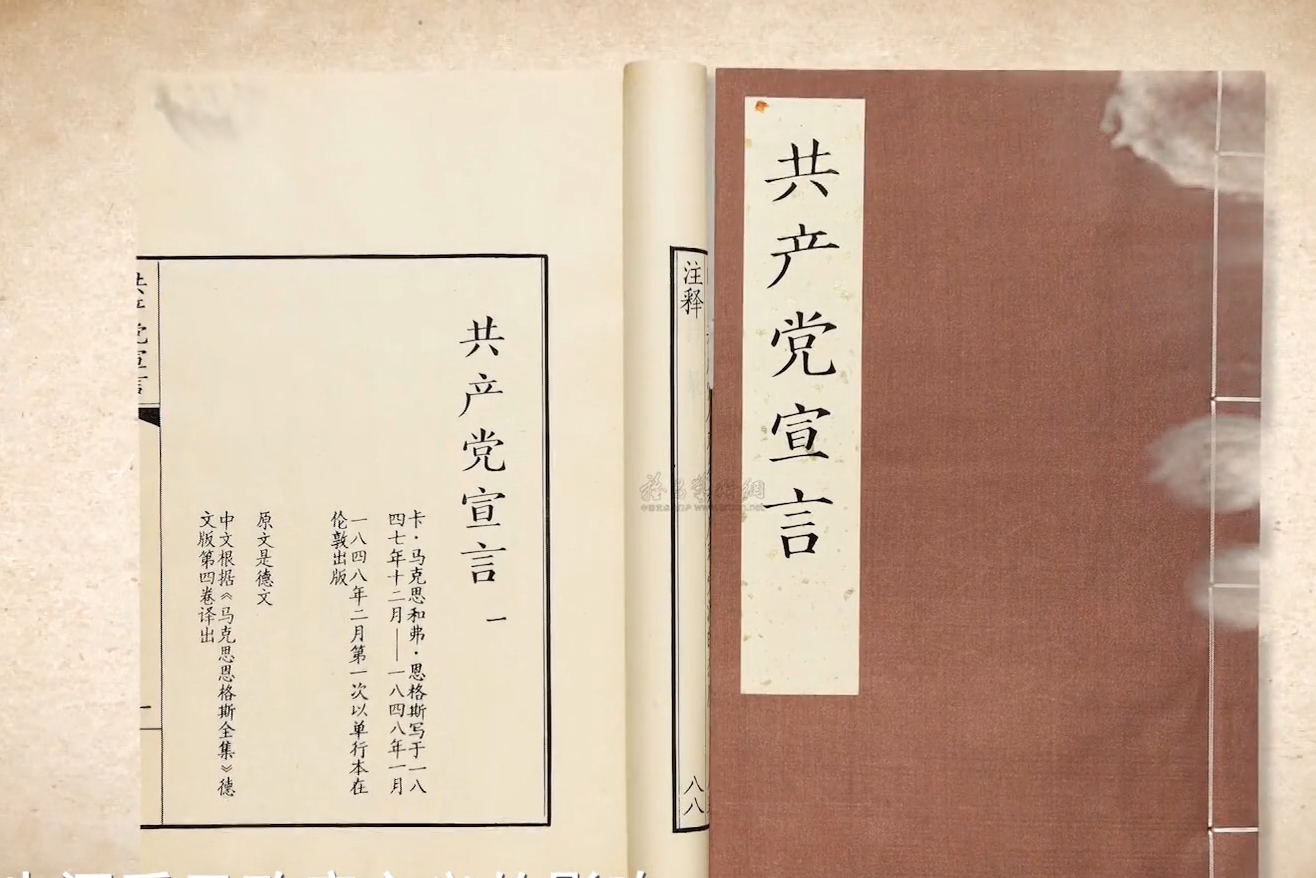 共产党宣言
注释
八八
共产党宣言 一
卡·马克思和弗·恩格斯写于一八
四七年十二月——一八四八年一月
一八四八年二月第一次以单行本在
伦敦出版
原文是德文
中文根据《马克思恩格斯全集》德
文版第四卷译出
共产党宣言